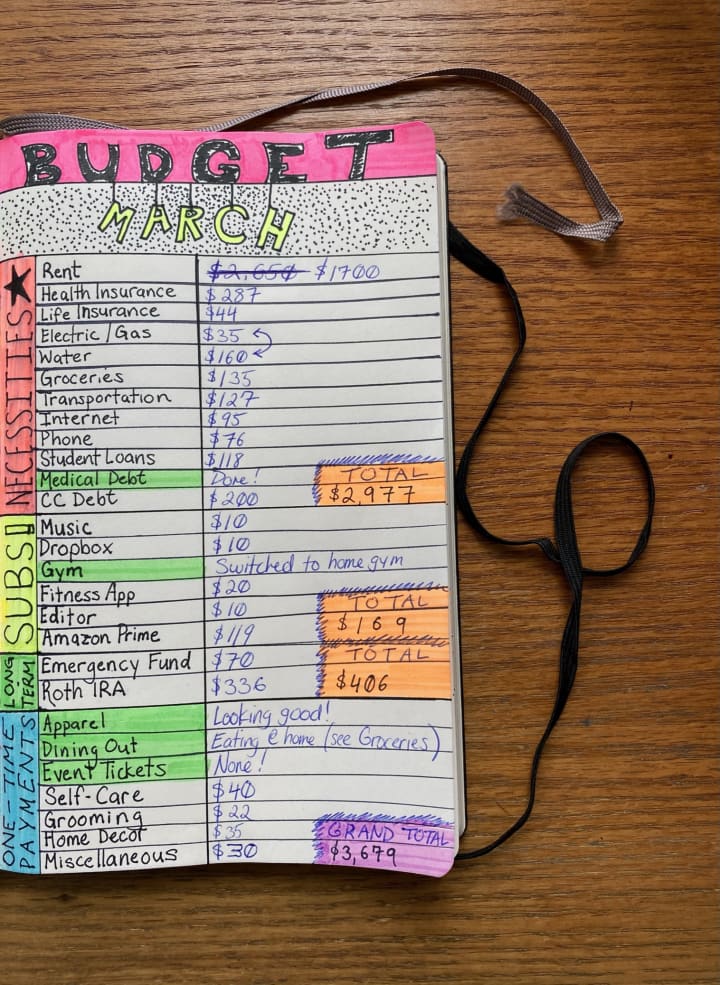 BUDGET
MARCH
NECESSITIES
Rent $2,650 $1700
Health Insurance $287
Life Insurance $44
Electric/Gas $35
Water $160
Groceries $135
Transportation $127
Internet $95
Phone $76
Student Loans $118
Medical Debt Done! TOTAL
CC Debt $200 $2,977
SUBS!
Music $10
Dropbox $10
Gym Switched to home gym
Fitness App $20
Editor $10 TOTAL
Amazon Prime $119 $169
LONG TERM
Emergency Fund $70 TOTAL
Roth IRA $336 $406
ONE-TIME PAYMENTS
Apparel Looking good!
Dining Out Eating @ home (see Groceries)
Event Tickets None!
Self-Care $40
Grooming $22
Home Decor $35 GRAND TOTAL
Miscellaneous $30 $3,679